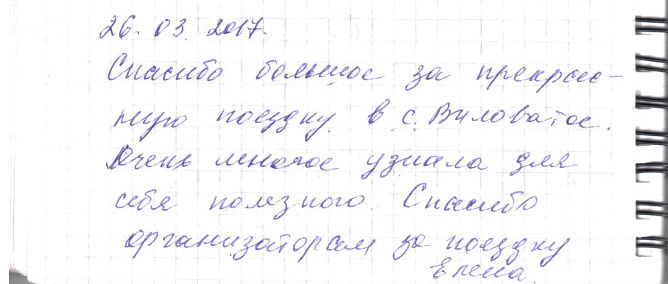 26.03.2017.
Спасибо большое за прекрас-
ную поездку в с. Виловатое.
Очень многое узнала для
себя полезного. Спасибо
организаторам за поездку
Елена.